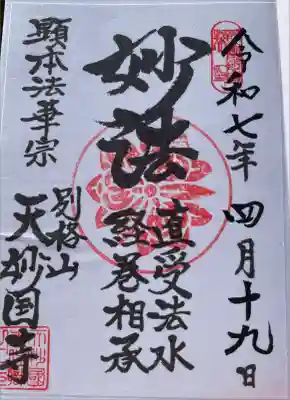 令和七年四月十九日
妙法
直受法水
経巻相承
顕本法華宗
別格山
天妙国寺